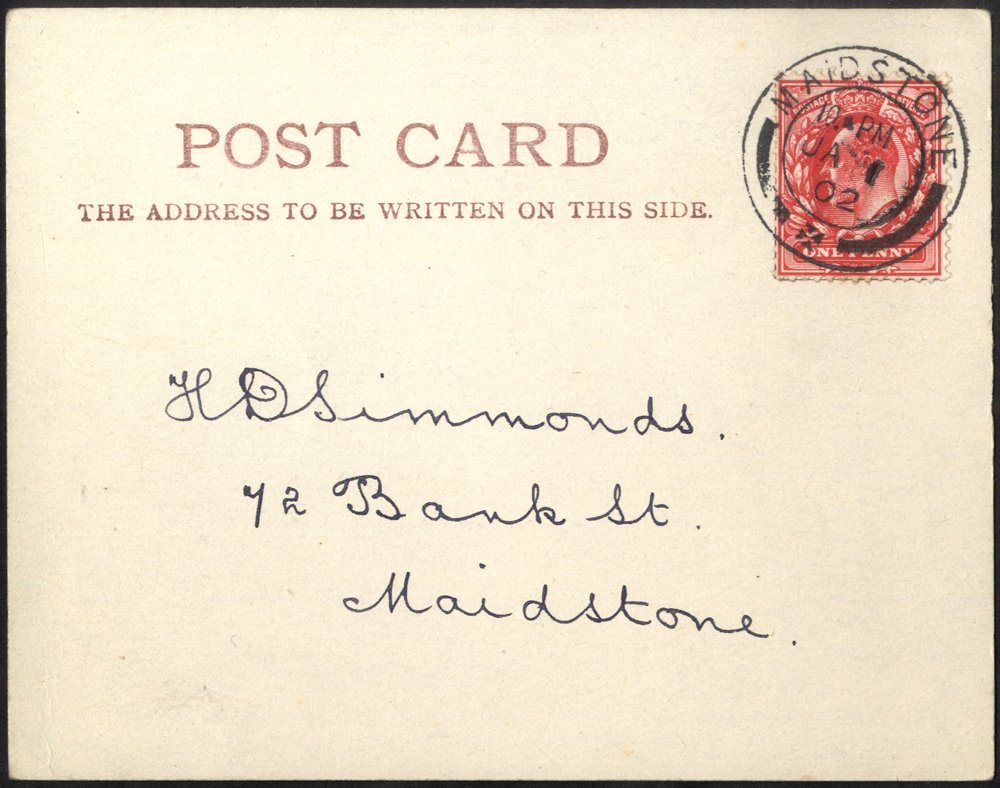 POST CARD
THE ADDRESS TO BE WRITTEN ON THIS SIDE.
MAIDSTONE
10 PM
JAN 1
02
POSTAGE REVENUE
ONE PENNY
H D Simmonds.
72 Bank St.
Maidstone.